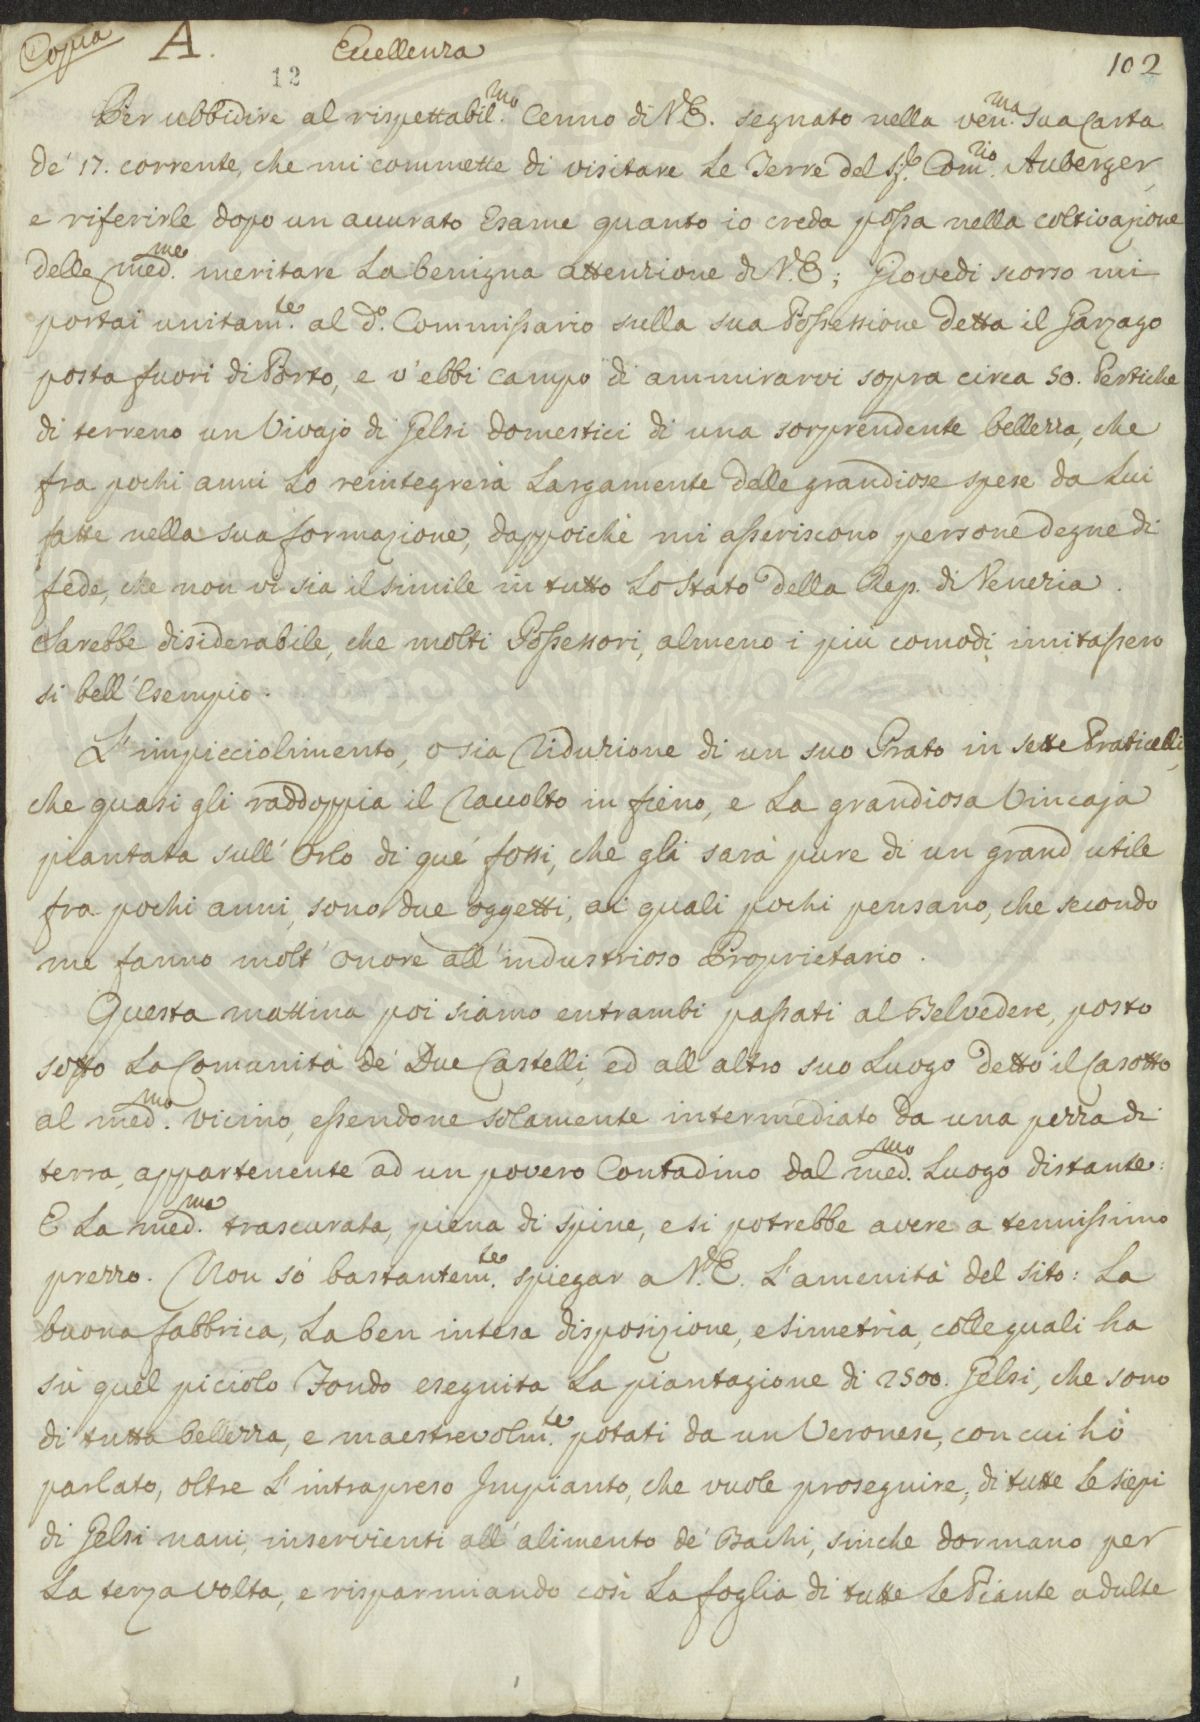 Copia A. Eccellenza 102
12
Per ubbidire al rispettabil.mo Cenno di V.E. segnato nella ven.ma sua Carta
de' 17. corrente, che mi commette di visitare le Terre del Sig.r Com.rio Auberger,
e riferirle dopo un accurato Esame quanto io creda possa nella coltivazione
delle med.me meritare la benigna attenzione di V.E; Giovedi scorso mi
portai unitam.te al d.o Commissario sulla sua Possessione detta il Garzago
posta fuori di Porto, e v'ebbi campo di ammirarvi sopra circa 50. Pertiche
di terreno un Vivajo di Gelsi domestici di una sorprendente bellezza, che
fra pochi anni lo reintegrerà largamente delle grandiose spese da lui
fatte nella sua formazione, dappoichè mi asseriscono persone degne di
fede, che non vi sia il simile in tutto lo Stato della Rep. di Venezia.
Sarebbe disiderabile, che molti Possessori, almeno i più comodi imitassero
si bell'Esempio.
L'impicciolimento, o sia Riduzione di un suo Prato in sette Praticelli,
che quasi gli raddoppia il Raccolto in fieno, e la grandiosa Vincaja
piantata sull'Orlo di que' fossi, che gli sarà pure di un grand utile
fra pochi anni, sono due oggetti, ai quali pochi pensano, che secondo
me fanno molt'onore all'industrioso Proprietario.
Questa mattina poi siamo entrambi passati al Belvedere, posto
sotto la Comunità de' Due Castelli, ed all altro suo Luogo detto il Casotto
al med.mo vicino, essendone solamente intermediato da una pezza di
terra, appartenente ad un povero Contadino dal med.mo Luogo distante:
E la med.ma trascurata, piena di spine, e si potrebbe avere a tenuissimo
prezzo. Non sò bastantem.te spiegar a V.E. l'amenità del sito: la
buona fabbrica, la ben intesa disposizione, e simetria, colle quali ha
sù quel picciolo Fondo eseguita la piantagione di 2500. Gelsi, che sono
di tutta bellezza, e maestrevolm.te potati da un Veronese, con cui hò
parlato, oltre l'intrapreso Impianto, che vuole proseguire, di tutte le siepi
di Gelsi nani, inservienti all'alimento de' Bachi, sinche dormano per
la terza volta, e risparmiando così la foglia di tutte le Piante adulte